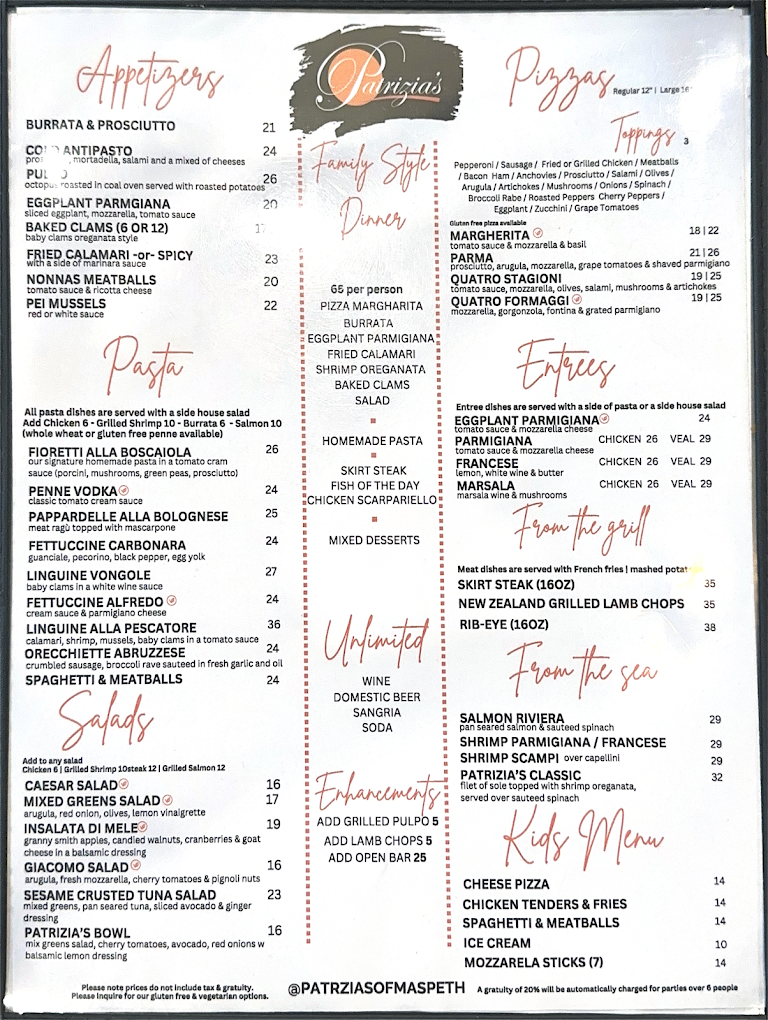 Appetizers
BURRATA & PROSCIUTTO 21
ANTIPASTO 24
mortadella, salami and a mixed of cheeses
26
octopus roasted in coal oven served with roasted potatoes
EGGPLANT PARMGIANA 20
sliced eggplant, mozzarella, tomato sauce
BAKED CLAMS (6 OR 12)
baby clams oreganata style
FRIED CALAMARI -or- SPICY 23
with a side of marinara sauce
NONNAS MEATBALLS 20
tomato sauce & ricotta cheese
PEI MUSSELS 22
red or white sauce
Pasta
All pasta dishes are served with a side house salad
Add Chicken 6 - Grilled Shrimp 10 - Burrata 6 - Salmon 10
(whole wheat or gluten free penne available)
FIORETTI ALLA BOSCAIOLA 26
our signature homemade pasta in a tomato cram
sauce (porcini, mushrooms, green peas, prosciutto)
PENNE VODKA 24
classic tomato cream sauce
PAPPARDELLE ALLA BOLOGNESE 25
meat ragù topped with mascarpone
FETTUCCINE CARBONARA 24
guanciale, pecorino, black pepper, egg yolk
LINGUINE VONGOLE 27
baby clams in a white wine sauce
FETTUCCINE ALFREDO 24
cream sauce & parmigiano cheese
LINGUINE ALLA PESCATORE 36
calamari, shrimp, mussels, baby clams in a tomato sauce
ORECCHIETTE ABRUZZESE 24
crumbled sausage, broccoli rave sauteed in fresh garlic and oil
SPAGHETTI & MEATBALLS 24
Salads
Add to any salad
Chicken 6 | Grilled Shrimp 10steak 12 | Grilled Salmon 12
CAESAR SALAD 16
MIXED GREENS SALAD 17
arugula, red onion, olives, lemon vinaigrette
INSALATA DI MELE 19
granny smith apples, candied walnuts, cranberries & goat
cheese in a balsamic dressing
GIACOMO SALAD 16
arugula, fresh mozzarella, cherry tomatoes & pignoli nuts
SESAME CRUSTED TUNA SALAD 23
mixed greens, pan seared tuna, sliced avocado & ginger
dressing
PATRIZIA'S BOWL 16
mix greens salad, cherry tomatoes, avocado, red onions w
balsamic lemon dressing
Please note prices do not include tax & gratuity.
Please inquire for our gluten free & vegetarian options.
Patrizia's
Family Style
Dinner
65 per person
PIZZA MARGHARITA
BURRATA
EGGPLANT PARMIGIANA
FRIED CALAMARI
SHRIMP OREGANATA
BAKED CLAMS
SALAD
HOMEMADE PASTA
SKIRT STEAK
FISH OF THE DAY
CHICKEN SCARPARIELLO
MIXED DESSERTS
Unlimited
WINE
DOMESTIC BEER
SANGRIA
SODA
Enhancements
ADD GRILLED PULPO 5
ADD LAMB CHOPS 5
ADD OPEN BAR 25
@PATRZIASOFMASPETH
Pizzas Regular 12" | Large 16"
Toppings 3
Pepperoni / Sausage / Fried or Grilled Chicken / Meatballs
/ Bacon Ham / Anchovies / Prosciutto / Salami / Olives /
Arugula / Artichokes / Mushrooms / Onions / Spinach /
Broccoli Rabe / Roasted Peppers Cherry Peppers /
Eggplant / Zucchini / Grape Tomatoes
Gluten free pizza available
MARGHERITA 18 | 22
tomato sauce & mozzarella & basil
PARMA 21 | 26
prosciutto, arugula, mozzarella, grape tomatoes & shaved parmigiano
QUATRO STAGIONI 19 | 25
tomato sauce, mozzarella, olives, salami, mushrooms & artichokes
QUATRO FORMAGGI 19 | 25
mozzarella, gorgonzola, fontina & grated parmigiano
Entrees
Entree dishes are served with a side of pasta or a side house salad
EGGPLANT PARMIGIANA 24
tomato sauce & mozzarella cheese
PARMIGIANA CHICKEN 26 VEAL 29
tomato sauce & mozzarella cheese
FRANCESE CHICKEN 26 VEAL 29
lemon, white wine & butter
MARSALA CHICKEN 26 VEAL 29
marsala wine & mushrooms
From the grill
Meat dishes are served with French fries | mashed
SKIRT STEAK (16OZ) 35
NEW ZEALAND GRILLED LAMB CHOPS 35
RIB-EYE (16OZ) 38
From the sea
SALMON RIVIERA 29
pan seared salmon & sauteed spinach
SHRIMP PARMIGIANA / FRANCESE 29
SHRIMP SCAMPI over capellini 29
PATRIZIA'S CLASSIC 32
filet of sole topped with shrimp oreganata,
served over sauteed spinach
Kids Menu
CHEESE PIZZA 14
CHICKEN TENDERS & FRIES 14
SPAGHETTI & MEATBALLS 14
ICE CREAM 10
MOZZARELA STICKS (7) 14
A gratuity of 20% will be automatically charged for parties over 6 people